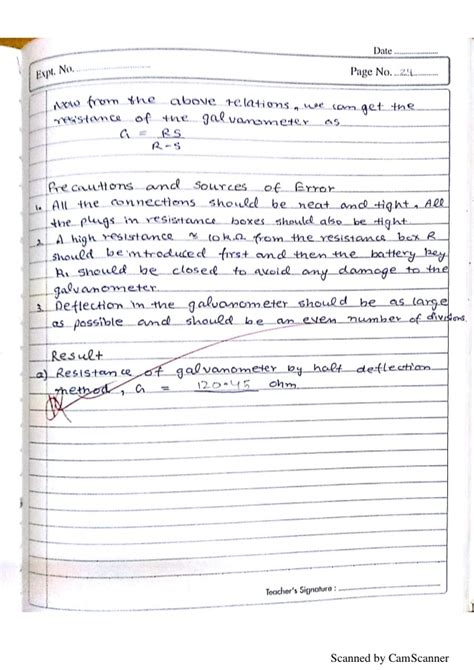 Date
Expt. No.
Page No. 24
Now from the above relations, we can get the
resistance of the galvanometer as
G = RS
R-S
Precautions and Sources of Error
1. All the connections should be neat and tight. All
the plugs in resistance boxes should also be tight
2. A high resistance ≈ 10kΩ from the resistance box R
should be introduced first and then the battery key
K1 should be closed to avoid any damage to the
galvanometer.
3. Deflection in the galvanometer should be as large
as possible and should be an even number of divisions.
Result
a) Resistance of galvanometer by half deflection
method, G = 120.45 ohm
Teacher's Signature :
Scanned by CamScanner